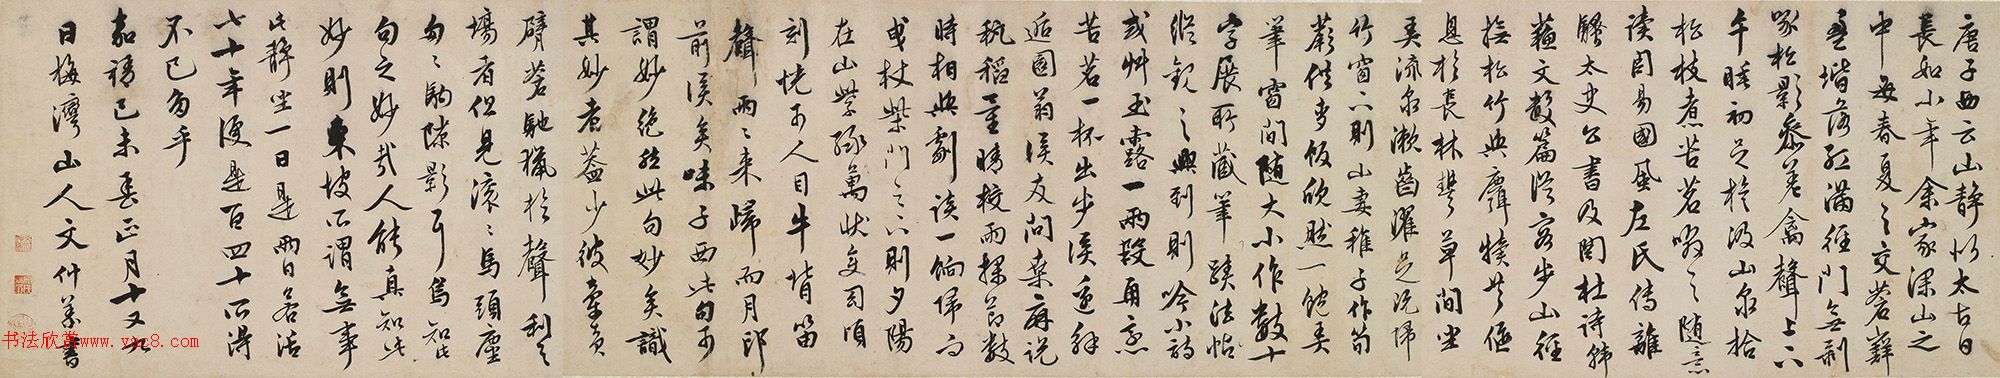 唐子西云山静似太古日
長如小年余家深山之
中每春夏之交蒼蘚
盈堦落花滿徑門無剥
啄松影參差禽聲上下
午睡初足旋汲山泉拾
松枝煮苦茗啜之随意
读周易國風左氏傳離
騷太史公書及陶杜詩韓
蘇文數篇從容步山徑
撫松竹與麛犢共偃
息於長林豐草間坐
弄流泉漱齒濯足既歸
竹窗下則山妻稚子作笋
蕨供麥飯欣然一飽弄
筆窗間随大小作數十
字展所藏筆蹟法帖
縱觀之興到則吟小詩
或艸玉露一兩段再烹
苦茗一杯出步溪邊解
逅園翁溪友問桑麻说
秔稻量晴校雨探節数
時相與劇談一餉歸而
曵杖柴門之下則夕陽
在山紫緑萬状变幻頃
刻恍可人目牛背笛
聲兩〻来歸而月印
前溪矣味子西此句可
謂妙絶然此句妙矣識
其妙者蓋少彼牽黄
臂蒼馳獵於聲利之
場者但見滚〻馬頭塵
匆〻駒隙影耳烏知此
句之妙哉人能真知此
妙則東坡所謂無事
此静坐一日是兩日若活
七十年便是百四十所得
不已多乎
嘉靖己未春正月十又九
日梅灣山人文仲書
书法欣赏www.yac8.com